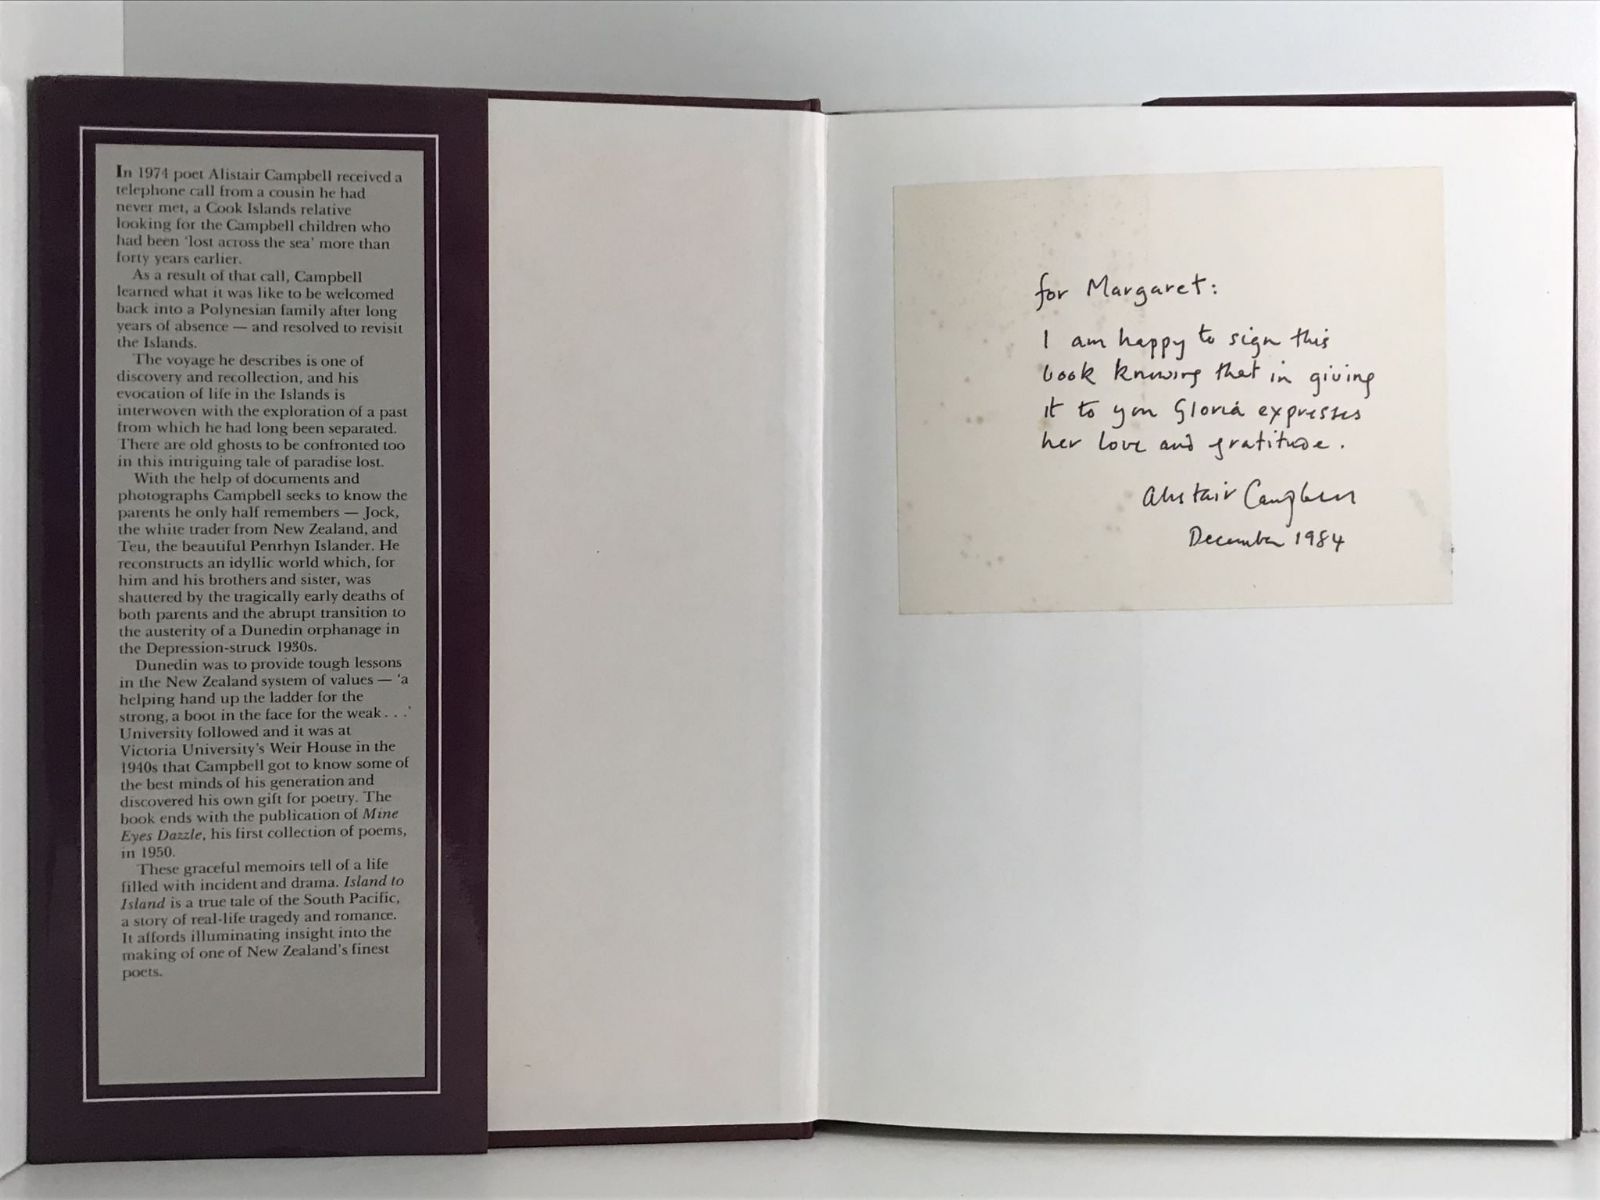 In 1974 poet Alistair Campbell received a
telephone call from a cousin he had
never met, a Cook Islands relative
looking for the Campbell children who
had been 'lost across the sea' more than
forty years earlier.
As a result of that call, Campbell
learned what it was like to be welcomed
back into a Polynesian family after long
years of absence — and resolved to revisit
the Islands.
The voyage he describes is one of
discovery and recollection, and his
evocation of life in the Islands is
interwoven with the exploration of a past
from which he had long been separated.
There are old ghosts to be confronted too
in this intriguing tale of paradise lost.
With the help of documents and
photographs Campbell seeks to know the
parents he only half remembers — Jock,
the white trader from New Zealand, and
Teu, the beautiful Penrhyn Islander. He
reconstructs an idyllic world which, for
him and his brothers and sister, was
shattered by the tragically early deaths of
both parents and the abrupt transition to
the austerity of a Dunedin orphanage in
the Depression-struck 1930s.
Dunedin was to provide tough lessons
in the New Zealand system of values — 'a
helping hand up the ladder for the
strong, a boot in the face for the weak . . .'
University followed and it was at
Victoria University's Weir House in the
1940s that Campbell got to know some of
the best minds of his generation and
discovered his own gift for poetry. The
book ends with the publication of Mine
Eyes Dazzle, his first collection of poems,
in 1950.
These graceful memoirs tell of a life
filled with incident and drama. Island to
Island is a true tale of the South Pacific,
a story of real-life tragedy and romance.
It affords illuminating insight into the
making of one of New Zealand's finest
poets.
for Margaret:
I am happy to sign this
book knowing that in giving
it to you Gloria expresses
her love and gratitude.
Alistair Campbell
December 1984